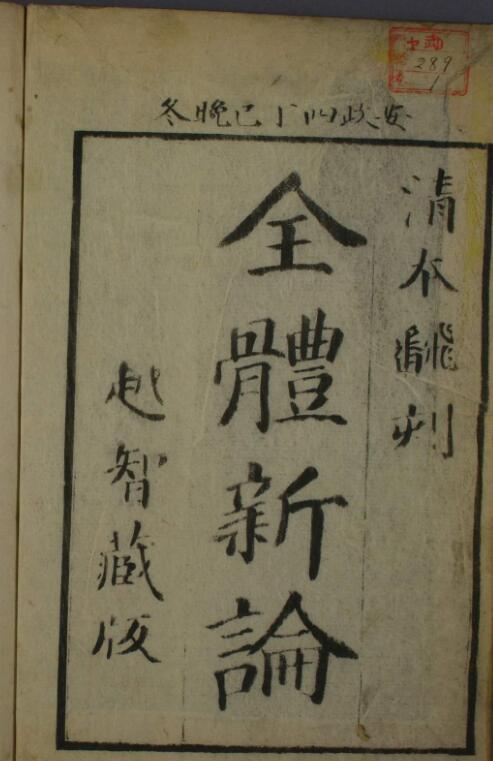 289
1
安政四丁巳晩冬
清本飜刻
全體新論
越智藏版